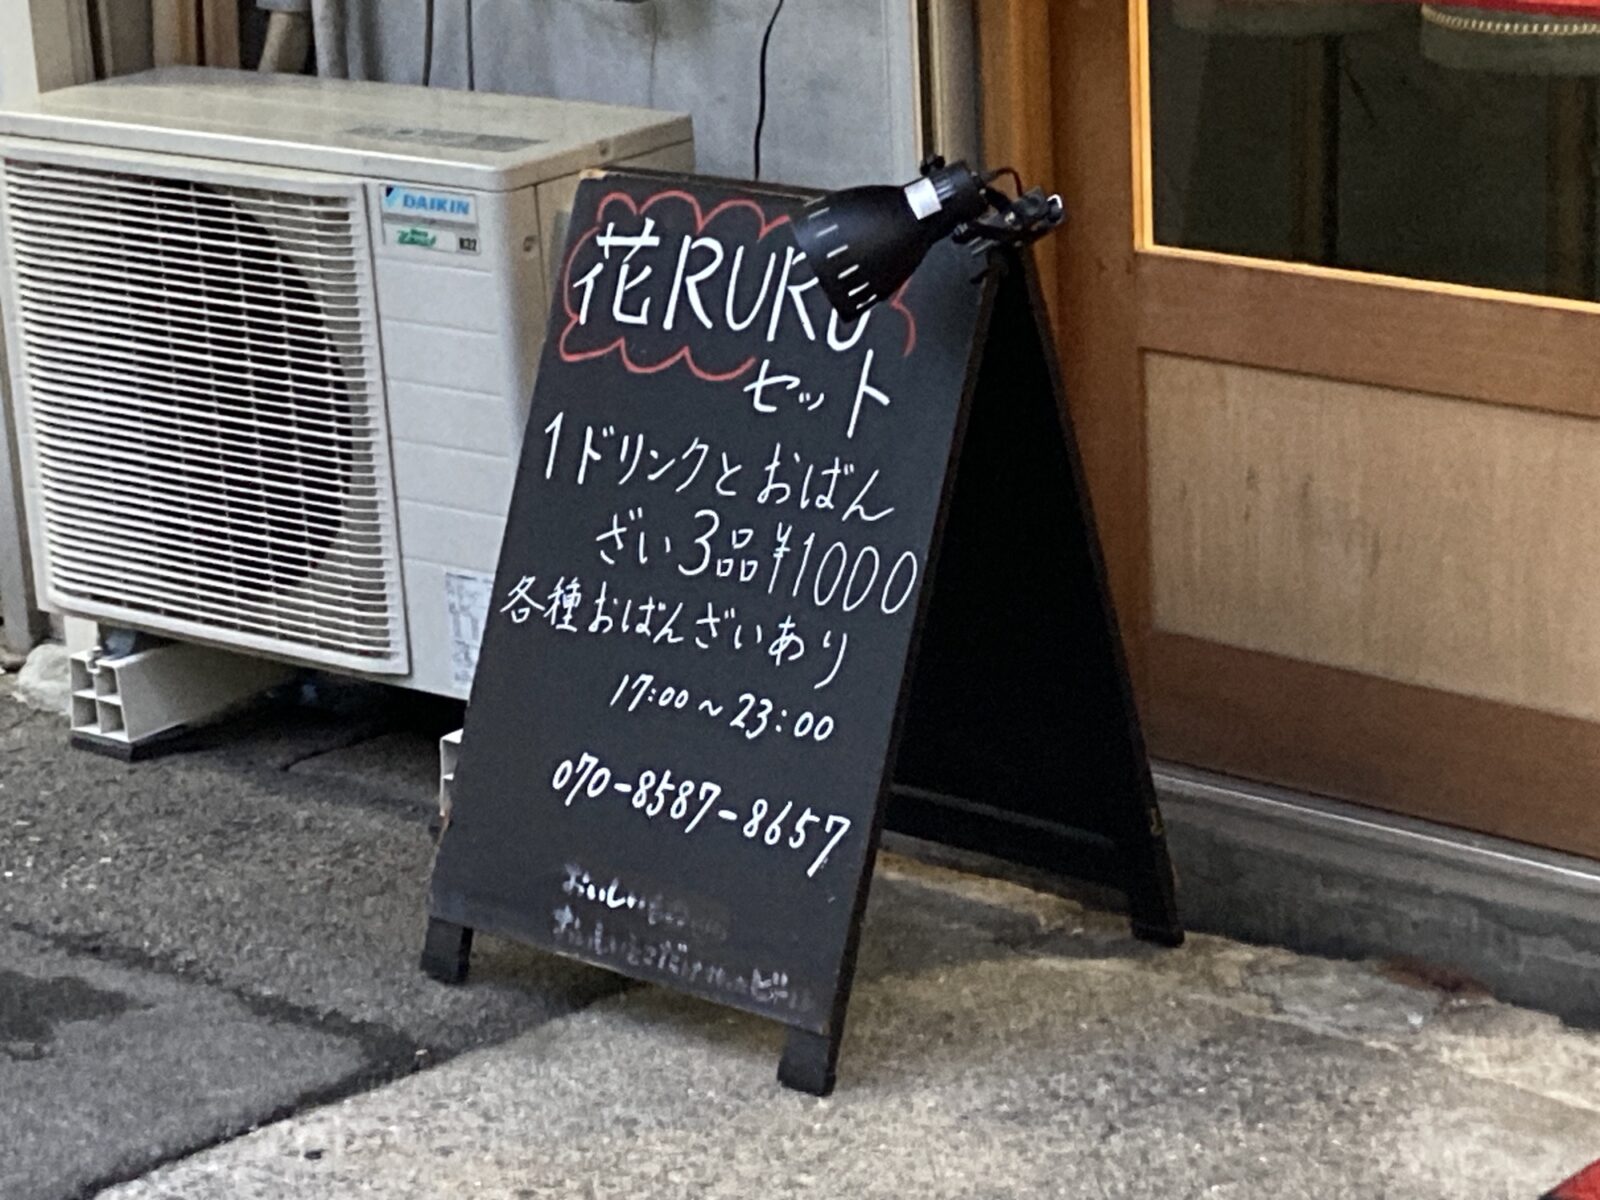 DAIKIN
R32
花RURU
セット
1ドリンクとおばん
ざい3品¥1000
各種おばんざいあり
17:00～23:00
070-8587-8657
おいしい